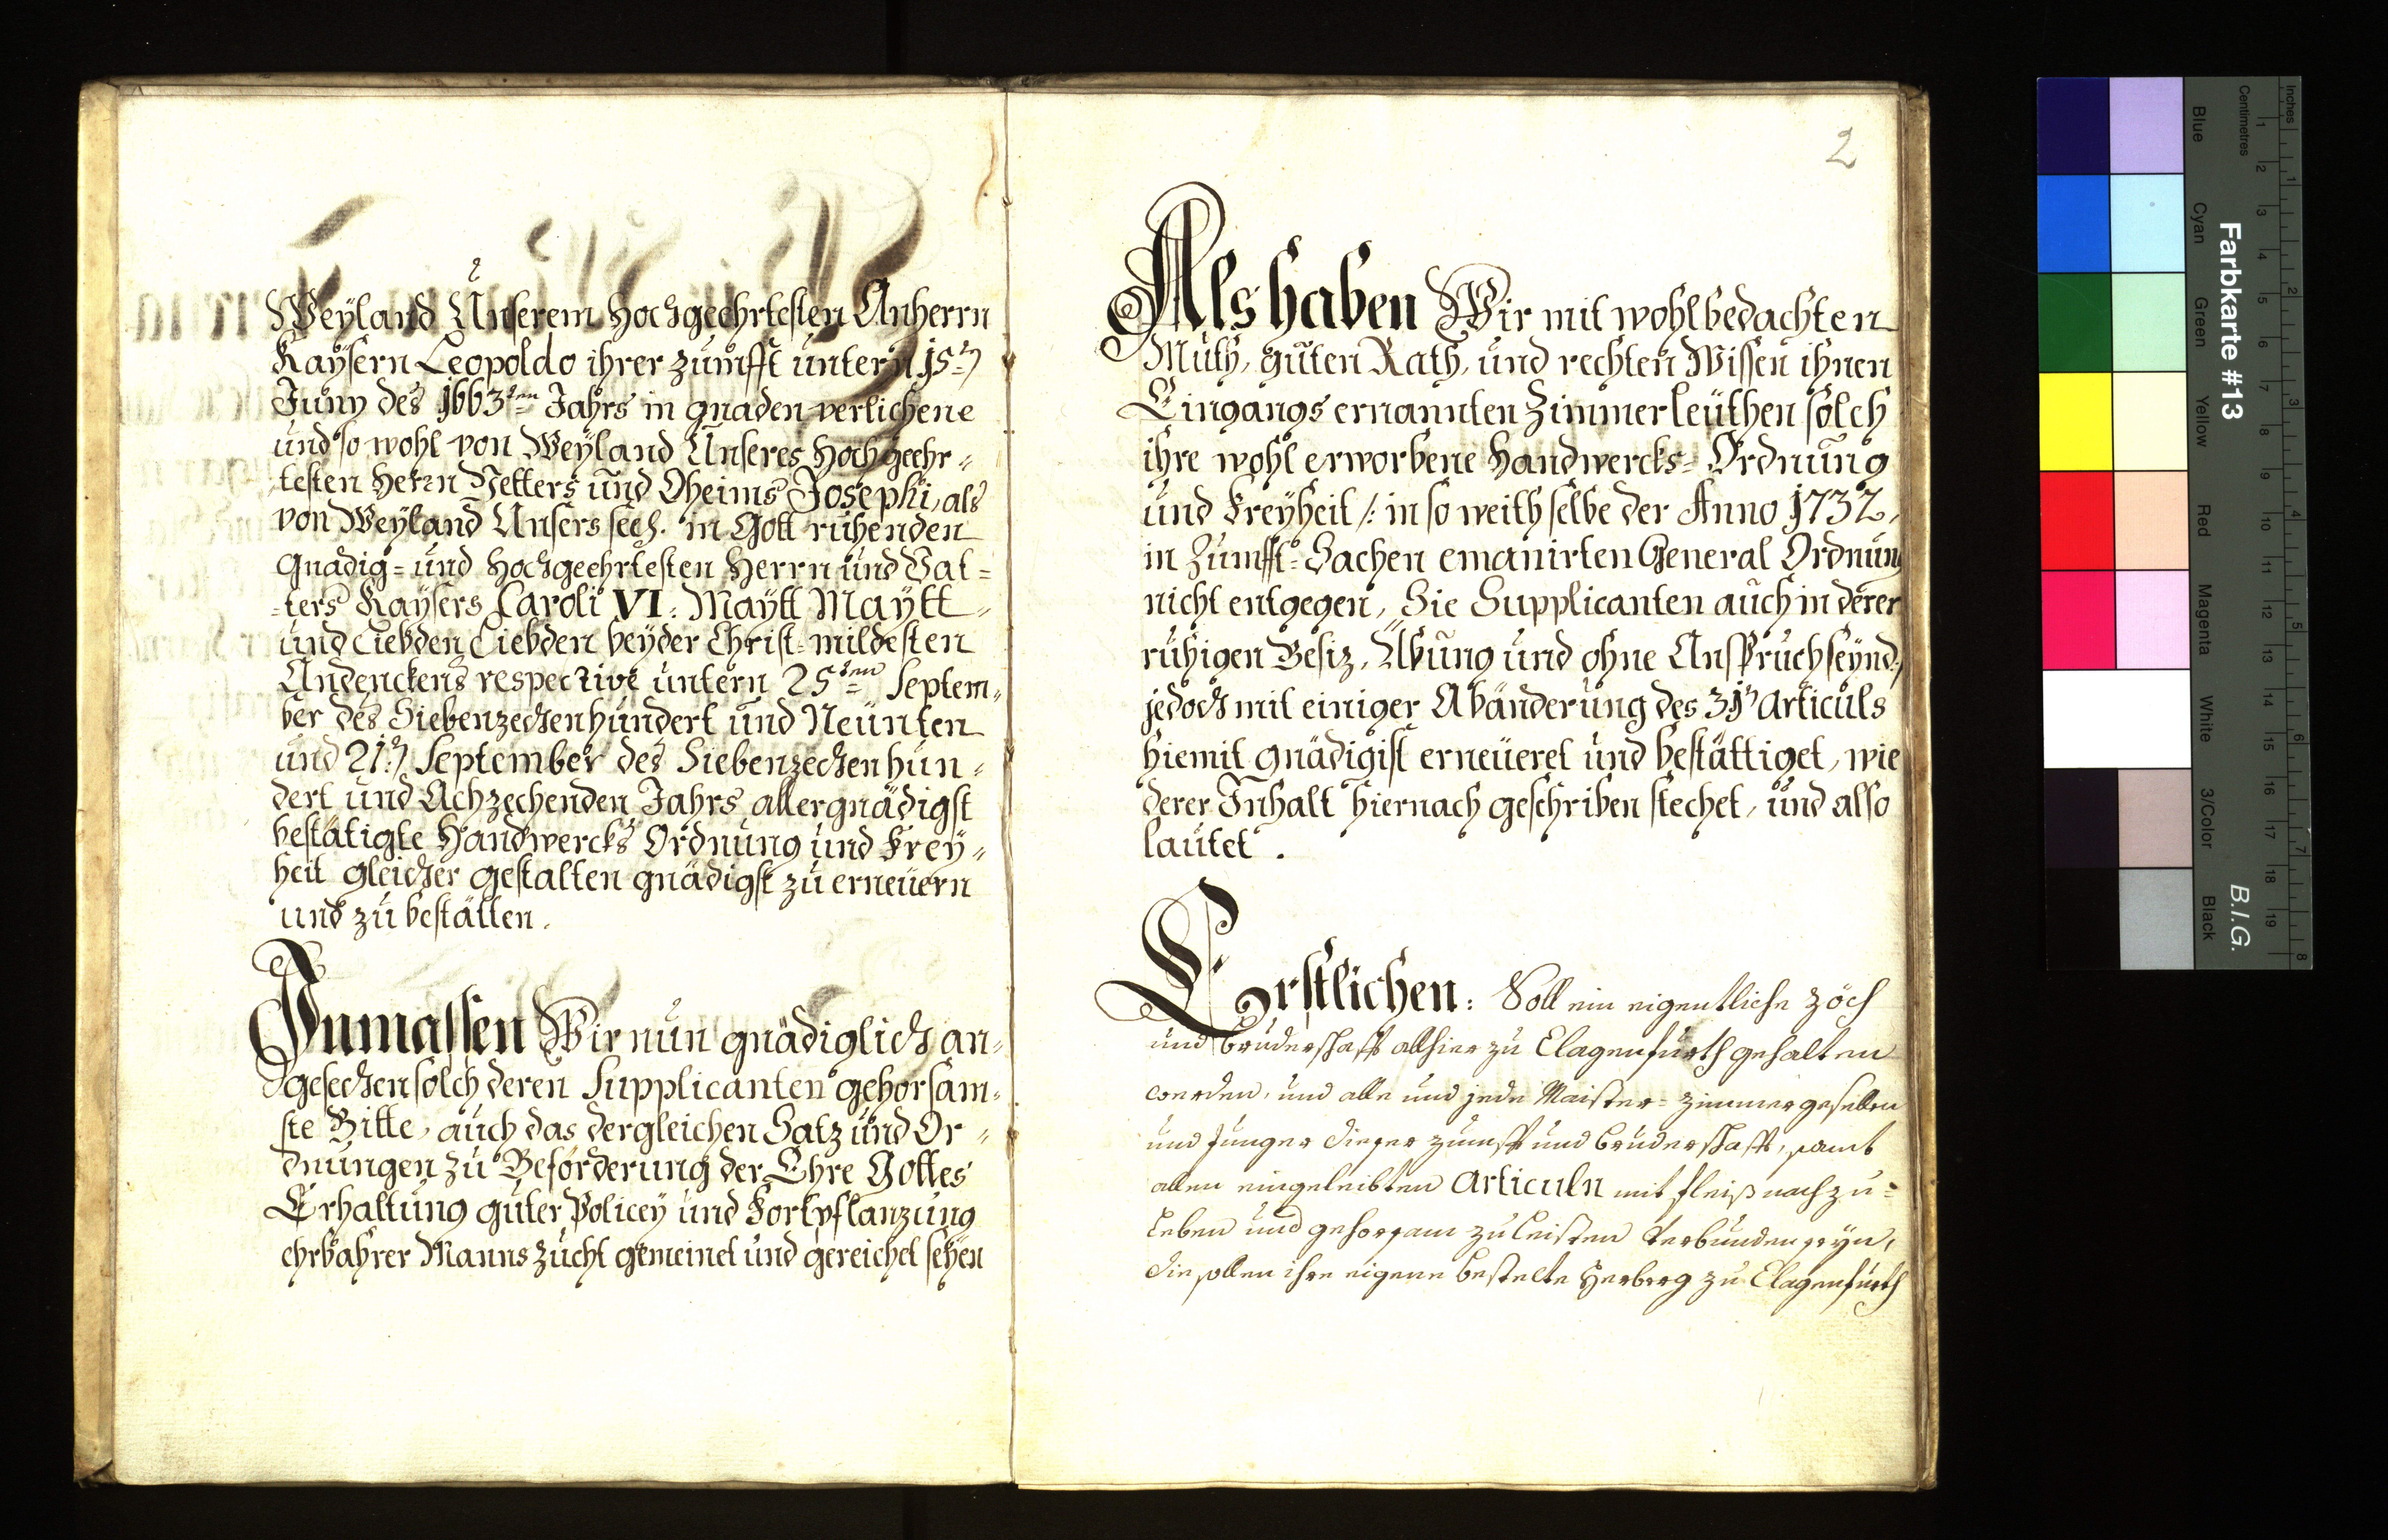 Weyland Unserem Hochgeehrtesten Anherrn
Kaysern Leopoldo ihrer Zumfft untern 15:n
Juny des 1663ten Jahrs in gnaden verlichene
und so wohl von Weyland Unseres Hochgeehr=
testen Herrn Vetters und Oheims Josephi, als
von Weyland Unsers seel. in Gott ruhenden
Gnädig= und Hochgeehrtesten Herrn und Vat=
=ters Kaysers Caroli VI: Maytt Maytt
und Liebden Liebden beyder Christ=mildesten
Andenckens respective untern 25ten Septem=
ber des Siebenzechenhundert und Neunten
und 21:n September des Siebenzechenhun=
dert und Achzechenden Jahrs allergnädigst
bestätigte Handwercks Ordnung und Frey=
heit gleicher gestalten gnädigst zu erneuern
und zu bestätten.
Inmassen Wir nun gnädiglich an=
gesechen solch deren Supplicanten gehorsam=
ste Bitte, auch das dergleichen Satz und Or=
dnungen zu Beförderung der Ehre Gottes
Erhaltung guter Policey und Fortpflanzung
ehrbahrer Manns Zucht gemeinet und gereichet sehen
2
Als haben Wir mit wohlbedachten
Muth, guten Rath, und rechten Wissen ihnen
Eingangs ernannten Zimmerleuthen solch
ihre wohl erworbene Handwercks=Ordnung
und Freyheit /: in so weith selbe der Anno 1732,
in Zumfft=Sachen emanirten General Ordnung
nicht entgegen, Sie Supplicanten auch in derer
ruhigen Besiz, Übung und ohne Anspruch seynd:/
jedoch mit einiger Abänderung des 31n Articuls
hiemit gnädigist erneueret und bestättiget, wie
derer Inhalt hiernach geschriben stechet, und also
lautet.
Erstlichen: Soll ein eigentliche Zöch
und Bruderschafft allhier zu Clagenfurth gehalten
werden, und alle und jede Maister= Zimmergesellen
und Junger dieser Zumfft und Bruderschafft, samt
allen eingeleibten Articuln mit fleiß nachzu=
leben und gehorsam zu leisten verbunden seyn,
die sollen ihre eigene bestelte Herberg zu Clagenfurth
Inches
Centimetres
1
2
3
4
5
6
7
8
9
10
11
12
13
14
15
16
17
18
19
1
2
3
4
5
6
7
8
Farbkarte #13
B.I.G.
Blue
Cyan
Green
Yellow
Red
Magenta
White
3/Color
Black